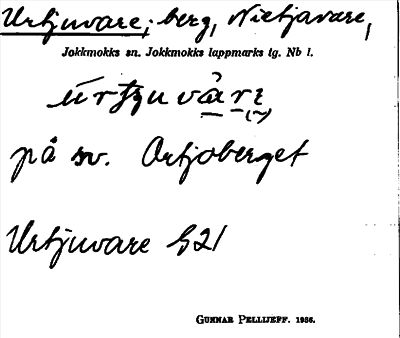 Urtjuvare; berg, Nietjavare,
Jokkmokks sn. Jokkmokks lappmarks tg. Nb l.
på sv. Ortjoberget
Urtjuvare G21
GUNNAR PELLIJEFF. 1956.